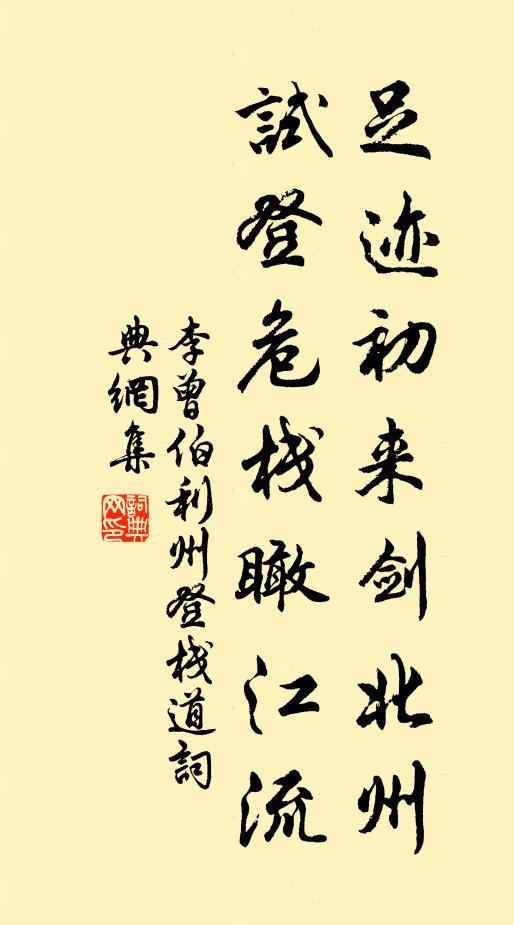 足迹初来剑北州
試登危栈瞰江流
李曾伯利州登栈道詞
典網集
詞典网印